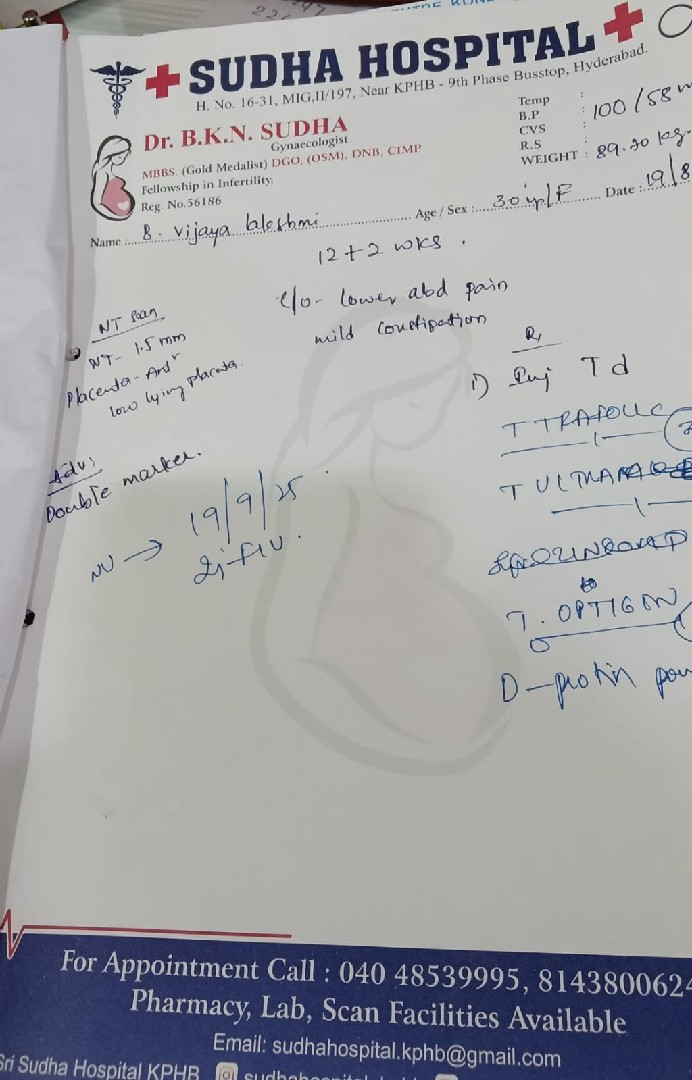 SUDHA HOSPITAL
H. No. 16-31, MIG,II/197, Near KPHB - 9th Phase Busstop, Hyderabad.
Dr. B.K.N. SUDHA
Gynaecologist
MBBS, (Gold Medalist) DGO, (OSM), DNB, CIMP
Fellowship in Infertility,
Reg. No.56186
Temp :
B.P : 100/58
CVS :
R.S :
WEIGHT : 89.20 kg
Name : Vijaya Age / Sex : 30 F Date : 19/8
12+2 wks.
c/o- lower abd pain
mild constipation
NT Scan
NT- 1.5 mm
Placenta- Antr
low lying placenta
Adv:
Double marker.
NV → 19/9/25
Rx
1) Inj Td
T
T
T. OPTIGON
D-protin
For Appointment Call : 040 48539995, 8143800624
Pharmacy, Lab, Scan Facilities Available
Email: sudhahospital.kphb@gmail.com
Sri Sudha Hospital KPHB